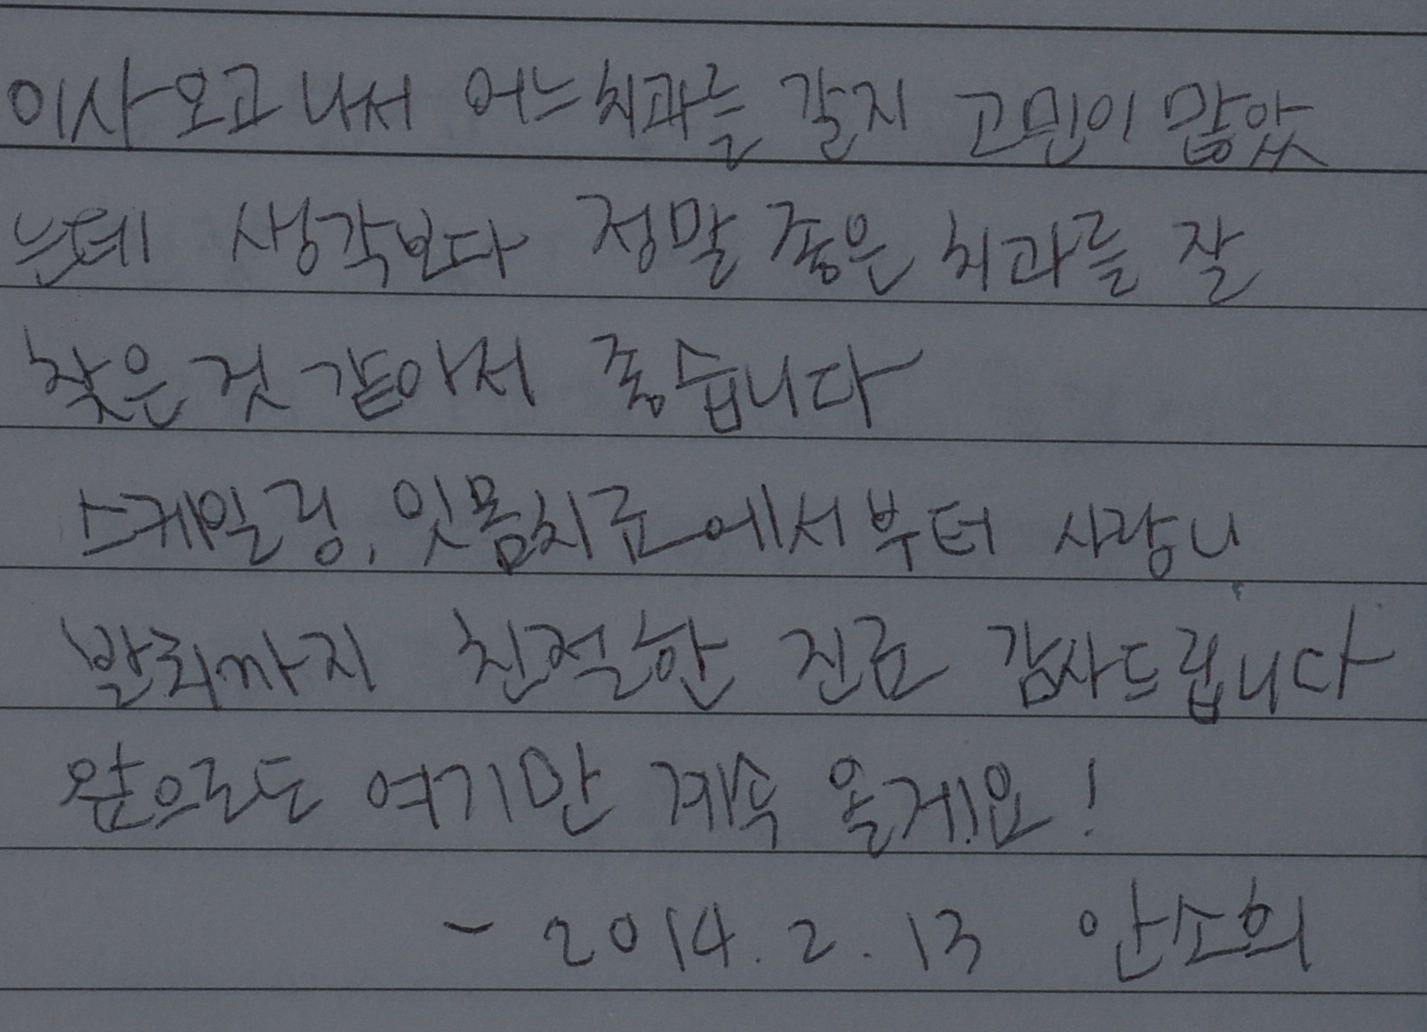 이사오고 나서 어느치과를 갈지 고민이 많았
는데 생각보다 정말 좋은 치과를 잘
찾은 것 같아서 좋습니다
스케일링, 잇몸치료에서부터 사랑니
발치까지 친절한 진료 감사드립니다
앞으로도 여기만 계속 올게요!
- 2014. 2. 13 안소희